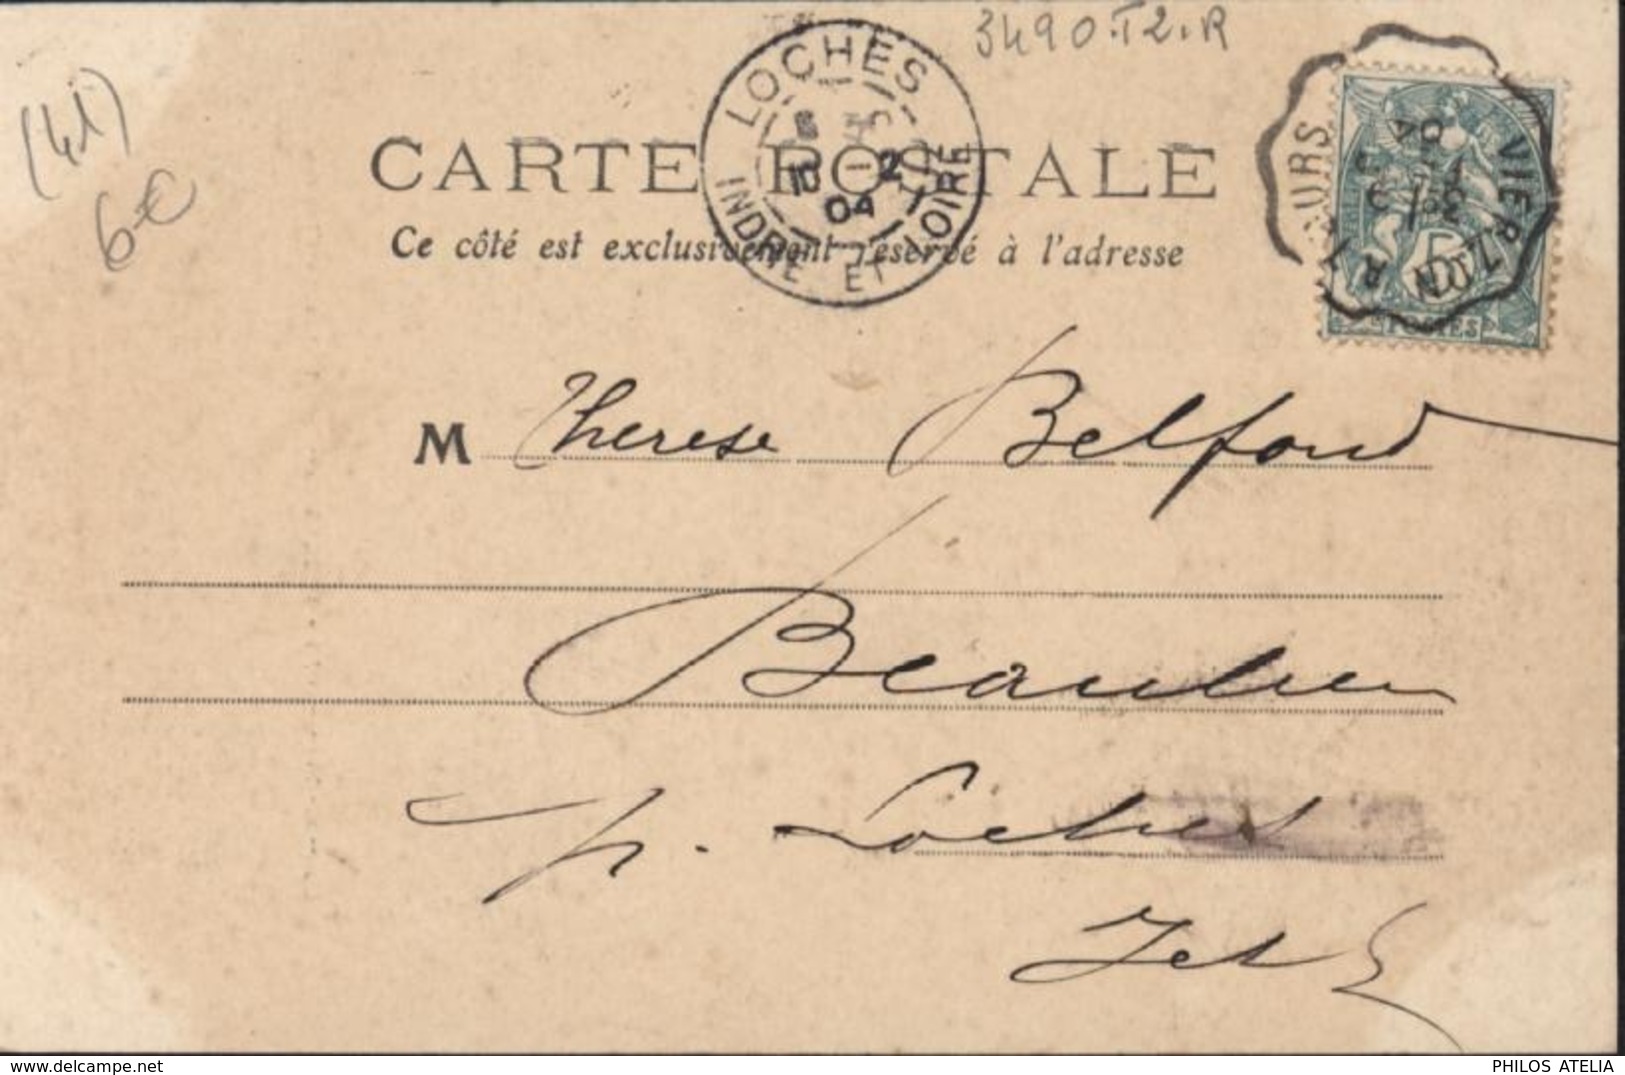 3490.T2.R
(41)
6€
LOCHES
10 2
04
INDRE ET LOIRE
VIERZON
TOURS
04
5
POSTES
CARTE POSTALE
Ce côté est exclusivement réservé à l'adresse
M Therese Belfond
Beaulieu
p. Loches
I et L
PHILOS ATELIA